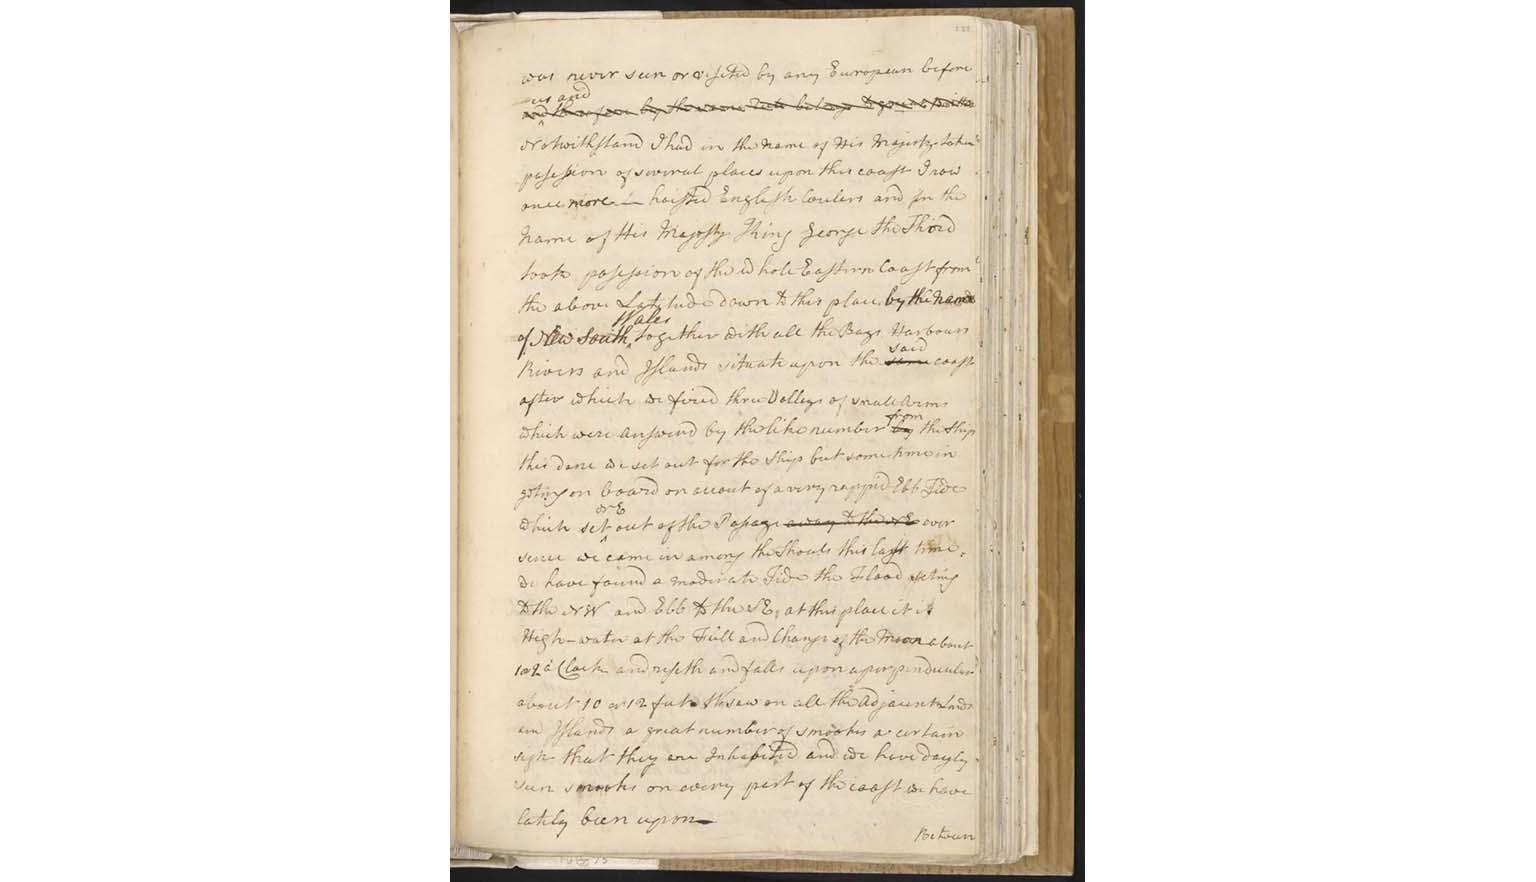 was never seen or visited by any European before
us and
and therefore by the same Rule belongs to great Brittan
Notwithstand I had in the name of His Majesty taken
posession of several places upon this coast I now
once more hoisted English Coulers and in the
Name of His Majesty King George the Third
took posession of the whole Eastern Coast from
the above Latitude down to this place by the name
of New South Wales together with all the Bays Harbours
Rivers and Islands situate upon the same said coast
after which we fired three Volleys of small Arms
which were Answerd by the like number by from the Ship
this done we set out for the Ship but some time in
geting on board on accout of a very rappid Ebb Tide
which set NE out of the Pasage away to the NE ever
sence we came in among the Shoals this last time,
we have found a moderate Tide the Flood seting
to the NW and Ebb to the SE, at this place it is
High-water at the Full and Change of the Moon about
1 or 2 oClock and riseth and falls upon a perpendicular
about 10 or 12 feet. We saw on all the Adjacent Lands
and Islands a great number of smooks a certain
sign that they are Inhabited and we have dayly
seen smooks on every part of the coast we have
lately been upon—
Between